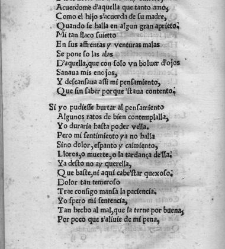 Acuerdome d'aquella que tanto amo,
Como el hijo s'acuerda de su madre,
Quando se halla en algun gran aprieto.
Mi tan flaco sujeto
En sus affrentas y venturas malas
Se pone so las alas
D'aquella, que con solo vn boluer d'ojos
Sanaua mis enojos,
Y descansaua assi mi pensamiento,
Que sin saber porque 'staua contento.
Si yo pudiesse hurtar al pensamiento
Algunos ratos de bien contemplalla,
Yo duraria hasta poder vella.
Pero mi sentimiento ya no halla
Sino dolor, espanto y caimiento,
Lloros, o muerte, o la tardança della.
Ya desto no ay querella,
Que baste, ni aqui cabe 'star quexoso.
Dolor tan temeroso
Trae consigo mansa la paciencia.
Yo spero mi sentencia,
Tan hecho al mal, que la terne por buena,
Por poco que s'aliuie de mi pena,